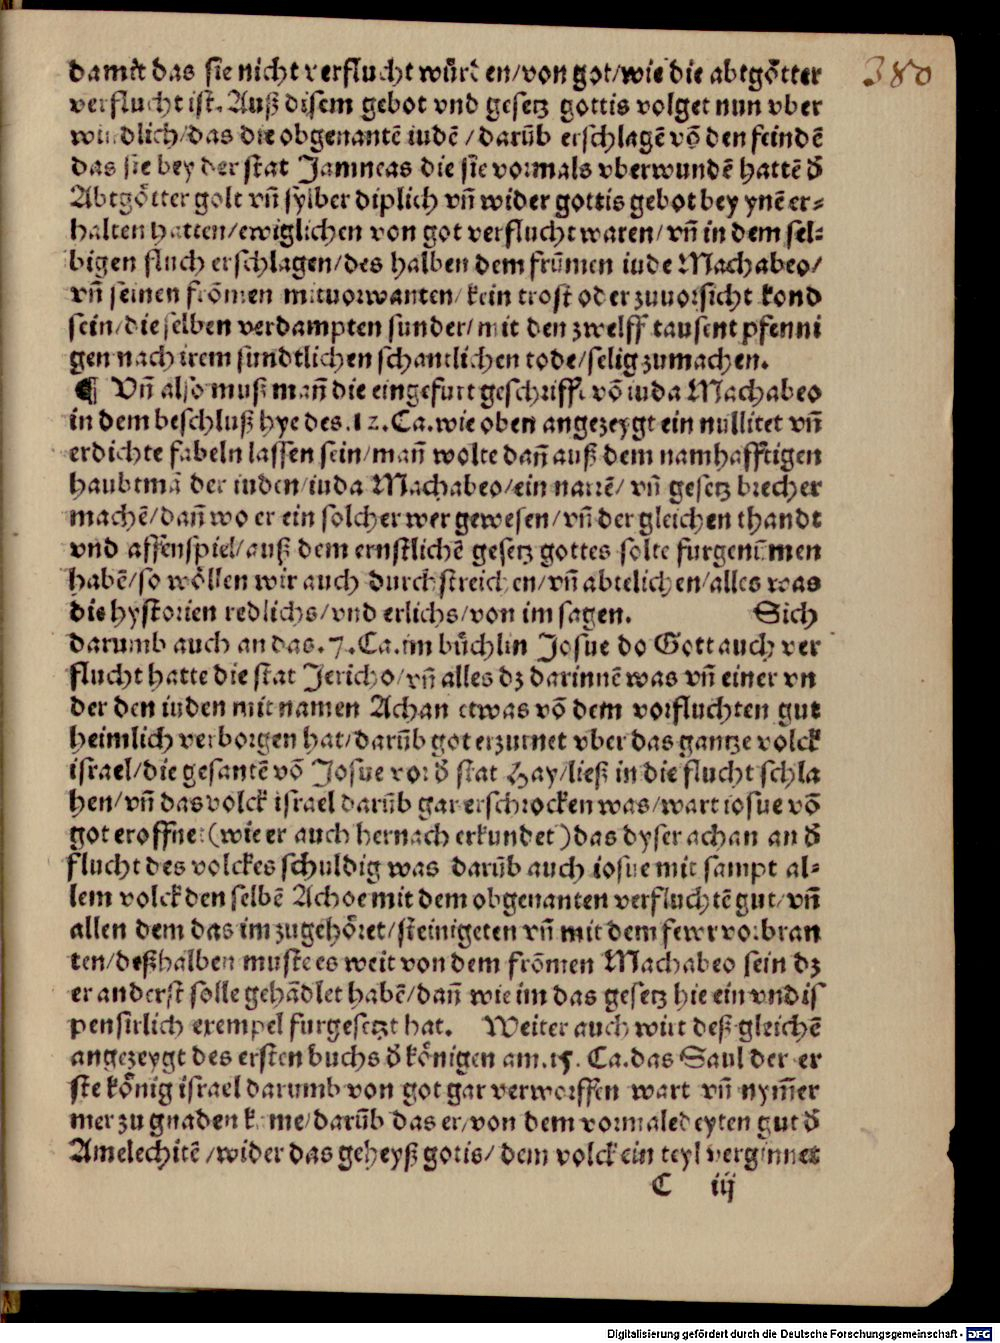 380
damit das sie nicht verflucht würden/von got/wie die abtgötter
verflucht ist. Auß disem gebot vnd gesetz gottis volget nun vber
windlich/das die obgenantē iudē/darūb erschlagē vō den feindē
das sie bey der stat Jamneas die sie vormals vberwundē hattē d̄
Abtgötter golt vn̄ sylber diplich vn̄ wider gottis gebot bey ynē er⸗
halten hatten/ewiglichen von got verflucht waren/vn̄ in dem sel⸗
bigen fluch erschlagen/des halben dem frūmen iude Machabeo/
vn̄ seinen frōmen mituorwanten/kein trost oder zuuorsicht kond
sein/die selben verdampten sunder/mit den zwelff tausent pfenni
gen nach irem sundtlichen schantlichen tode/selig zumachen.
¶ Vn̄ also muß man̄ die eingefurt geschrifft vō iuda Machabeo
in dem beschluß hye des .12. Ca. wie oben angezeygt ein nullitet vn̄
erdichte fabeln lassen sein/man̄ wolte dan̄ auß dem namhafftigen
haubtmā der iuden/iuda Machabeo/ein narrē/vn̄ gesetz brecher
machē/dan̄ wo er ein solcher wer gewesen/vn̄ der gleichen thandt
vnd affenspiel/auß dem ernstlichē gesetz gottes solte furgenūmen
habē/so wöllen wir auch durchstreichen/vn̄ abtelichen/alles was
die hystorien redlichs/vnd erlichs/von im sagen. Sich
darumb auch an das .7. Ca. im büchlin Josue do Gott auch ver
flucht hatte die stat Jericho/vn̄ alles dz darinnē was vn̄ einer vn
der den iuden mit namen Achan etwas vō dem vorfluchten gut
heimlich verborgen hat/darūb got erzurnet vber das gantze volck
israel/die gesantē vō Josue vor d̄ stat Hay/ließ in die flucht schla
hen/vn̄ das volck israel darūb gar erschrocken was/wart iosue vō
got eroffnet (wie er auch hernach erkundet) das dyser achan an d̄
flucht des volckes schuldig was darūb auch iosue mit sampt al⸗
lem volck den selbē Achoe mit dem obgenanten verfluchtē gut/vn̄
allen dem das im zugehöret/steinigeten vn̄ mit dem fewr vorbran
ten/deßhalben muste es weit von dem frōmen Machabeo sein dz
er anderst solle gehādlet habē/dan̄ wie im das gesetz hie ein vndis
pensirlich exempel furgesetzt hat. Weiter auch wirt deß gleichē
angezeygt des ersten buchs d̄ königen am .15. Ca. das Saul der er
ste könig israel darumb von got gar verworffen wart vn̄ nym̄er
mer zu gnaden kame/darūb das er/von dem vormaledeyten gut d̄
Amelechitē/wider das geheyß gotis/dem volck ein teyl verginnet
C iij
Digitalisierung gefördert durch die Deutsche Forschungsgemeinschaft - DFG